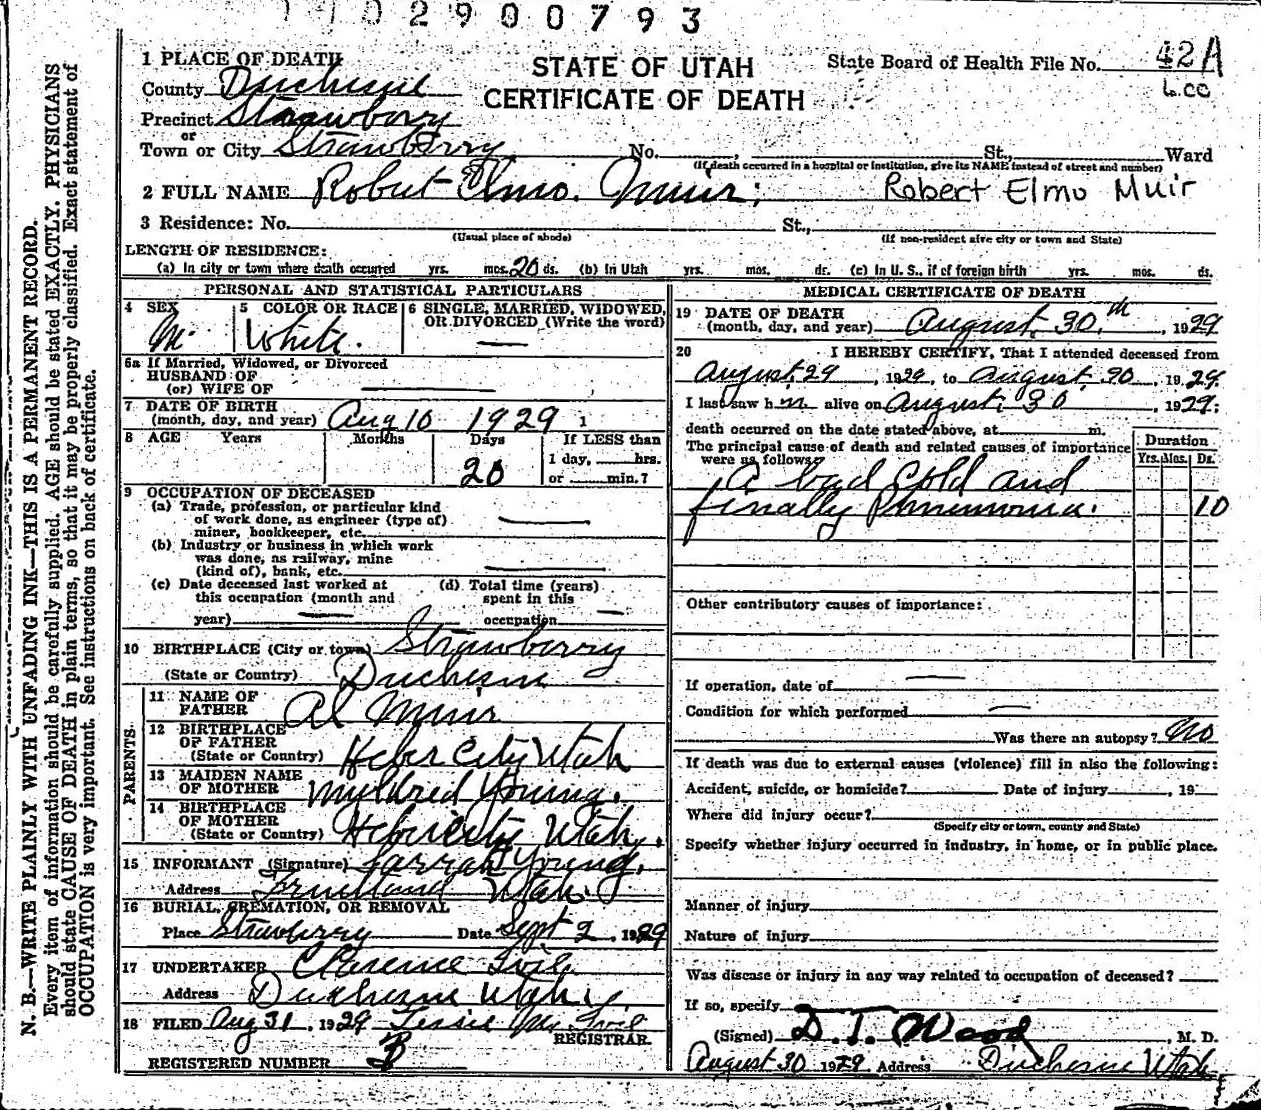 2900793
1 PLACE OF DEATH
STATE OF UTAH
CERTIFICATE OF DEATH
State Board of Health File No. 42A
County Duchesne
Precinct Strawberry
or
Town or City Strawberry No. , St., Ward
(If death occurred in a hospital or institution, give its NAME instead of street and number)
2 FULL NAME Robert Elmo. Muir; Robert Elmo Muir
3 Residence: No. St.,
(Usual place of abode) (If non-resident give city or town and State)
LENGTH OF RESIDENCE:
(a) In city or town where death occurred yrs. mos. 20 ds. (b) In Utah yrs. mos. ds. (c) In U. S., if of foreign birth yrs. mos. ds.
PERSONAL AND STATISTICAL PARTICULARS
4 SEX M. 5 COLOR OR RACE White. 6 SINGLE, MARRIED, WIDOWED, OR DIVORCED (Write the word) —
6a If Married, Widowed, or Divorced
HUSBAND OF
(or) WIFE OF —
7 DATE OF BIRTH
(month, day, and year) Aug 10 1929 1
8 AGE Years Months Days If LESS than
20 1 day, hrs.
or min.?
9 OCCUPATION OF DECEASED
(a) Trade, profession, or particular kind
of work done, as engineer (type of)
miner, bookkeeper, etc. —
(b) Industry or business in which work
was done, as railway, mine
(kind of), bank, etc. —
(c) Date deceased last worked at (d) Total time (years)
this occupation (month and spent in this
year) — occupation —
10 BIRTHPLACE (City or town) Strawberry
(State or Country) Duchesne
PARENTS
11 NAME OF
FATHER Al Muir
12 BIRTHPLACE
OF FATHER
(State or Country) Heber City Utah
13 MAIDEN NAME
OF MOTHER Myldred Young.
14 BIRTHPLACE
OF MOTHER
(State or Country) Heber City, Utah.
15 INFORMANT (Signature) Young.
Address Fruitland Utah.
16 BURIAL, CREMATION, OR REMOVAL
Place Strawberry Date Sept 2, 1929
17 UNDERTAKER Clarence
Address Duchesne Utah
18 FILED Aug 31, 1929
REGISTRAR.
REGISTERED NUMBER
MEDICAL CERTIFICATE OF DEATH
19 DATE OF DEATH
(month, day, and year) August. 30.th, 1929
20 I HEREBY CERTIFY, That I attended deceased from
August, 29, 1929, to August, 30, 1929.
I last saw h im alive on August, 30, 1929;
death occurred on the date stated above, at m.
The principal cause of death and related causes of importance
were as follows: Duration
Yrs. Mos. Ds.
A bad cold and
finally Phneumonia. 10
Other contributory causes of importance:
If operation, date of —
Condition for which performed —
Was there an autopsy? No
If death was due to external causes (violence) fill in also the following:
Accident, suicide, or homicide? Date of injury , 19
Where did injury occur?
(Specify city or town, county and State)
Specify whether injury occurred in industry, in home, or in public place.
Manner of injury
Nature of injury
Was disease or injury in any way related to occupation of deceased?
If so, specify
(Signed) D. T. Wood, M. D.
August 30 1929 Address Duchesne Utah
N. B.—WRITE PLAINLY WITH UNFADING INK—THIS IS A PERMANENT RECORD.
Every item of information should be carefully supplied. AGE should be stated EXACTLY. PHYSICIANS
should state CAUSE OF DEATH in plain terms, so that it may be properly classified. Exact statement of
OCCUPATION is very important. See instructions on back of certificate.